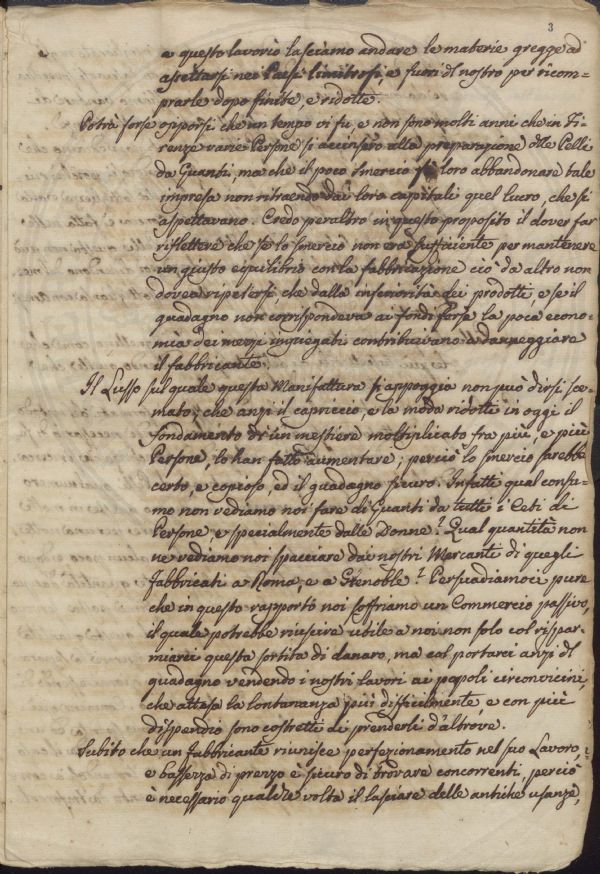 3
e questo lavorio lasciamo andare le materie gregge ad
assettarsi nei Paesi limitrofi, e fuori dl nostro per ricom-
prarle dopo finite, e ridotte.
Potrà forse opporsi che un tempo vi fu, e non sono molti anni che in Fi-
renze varie Persone si accinsero alla preparazione delle Pelli
da Guanti, ma che il poco smercio loro abbandonare tale
impresa non ritraendo dai loro capitali quel lucro, che si
aspettavano. Credo peraltro in questo proposito il dover far
riflettere che se lo smercio non era sufficiente per mantenere
un giusto equilibrio con la fabbricazione ciò da altro non
dovea ripetersi che dalla inferiorità dei prodotti e se il
guadagno non corrispondeva ai fondi forse la poca econo-
mia dei mezzi impiegati contribuivano a danneggiare
il fabbricante.
Il Lusso sul quale questa Manifattura si appoggia non può dirsi sce-
mato, che anzi il capriccio, e la moda ridotti in oggi il
fondamento di un mestiere moltiplicato fra più, e più
Persone, lo han fatto aumentare; perciò lo smercio sarebbe
certo, e copioso, ed il guadagno sicuro. Infatti qual consu-
mo non vediamo noi fare di Guanti da tutti i Ceti di
Persone, e specialmente dalle Donne? Qual quantità non
ne vediamo noi spacciare dai nostri Mercanti di quegli
fabbricati a Roma, e a Grenoble? Persuadiamoci pure
che in questo rapporto noi soffriamo un Commercio passivo,
il quale potrebbe riuscire utile a noi non solo col rispar-
miarci questa sortita di danaro, ma col portarci anzi dl
guadagno vendendo i nostri lavori ai popoli circonvicini,
che attesa la lontananza più difficilmente, e con più
dispendio sono costretti di prenderli d'altrove.
Subito che un fabbricante riunisce perfezionamento nel suo Lavoro,
e bassezza di prezzo è sicuro di trovare concorrenti, perciò
è necessario qualche volta il lasciare delle antiche usanze,